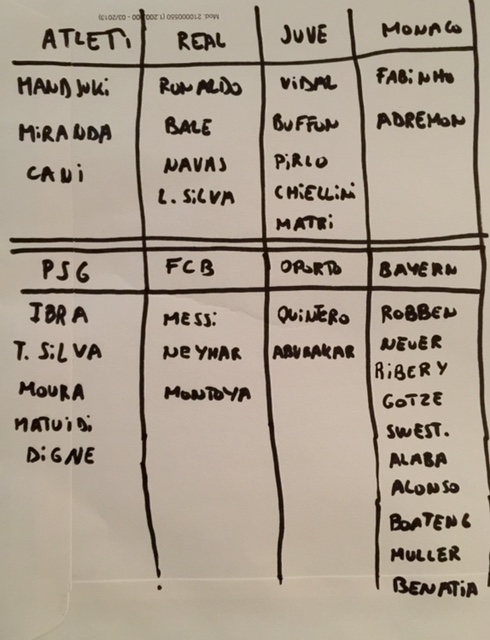 Mod. 21000550 (1.200.100 - 03/2013)
ATLETI REAL JUVE MONACO
MANDJUKI RONALDO VIDAL FABINHO
MIRANDA BALE BUFFON ADREMON
CANI NAVAS PIRLO
L. SILVA CHIELLINI
MATRI
PSG FCB OPORTO BAYERN
IBRA MESSI QUINTERO ROBBEN
T. SILVA NEYMAR ABUBAKAR NEUER
MOURA MONTOYA RIBERY
MATUIDI GOTZE
DIGNE SWEST.
ALABA
ALONSO
BOATENG
MULLER
BENATIA